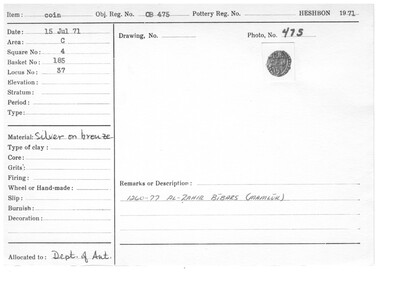 Item: coin Obj. Reg. No. OB 475 Pottery Reg. No. HESHBON 1971
Date: 15 Jul 71
Drawing, No. Photo, No. 475
Area: C
Square No: 4
Basket No: 185
Locus No: 37
Elevation:
Stratum:
Period:
Type:
Material: Silver on bronze
Type of clay:
Core:
Grits:
Firing:
Wheel or Hand-made:
Remarks or Description:
Slip:
1260-77 AL-ZAHIR BIBARS (MAMLŪK)
Burnish:
Decoration:
Allocated to: Dept. of Ant.